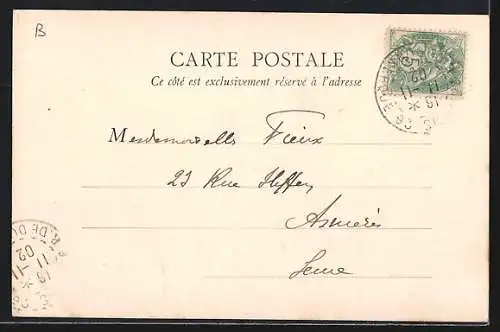 B
CARTE POSTALE
Ce côté est exclusivement réservé à l'adresse
Mesdemoiselles Vieux
23 Rue Steffen
Asnières
Seine
R. DE D
11 - 11
02